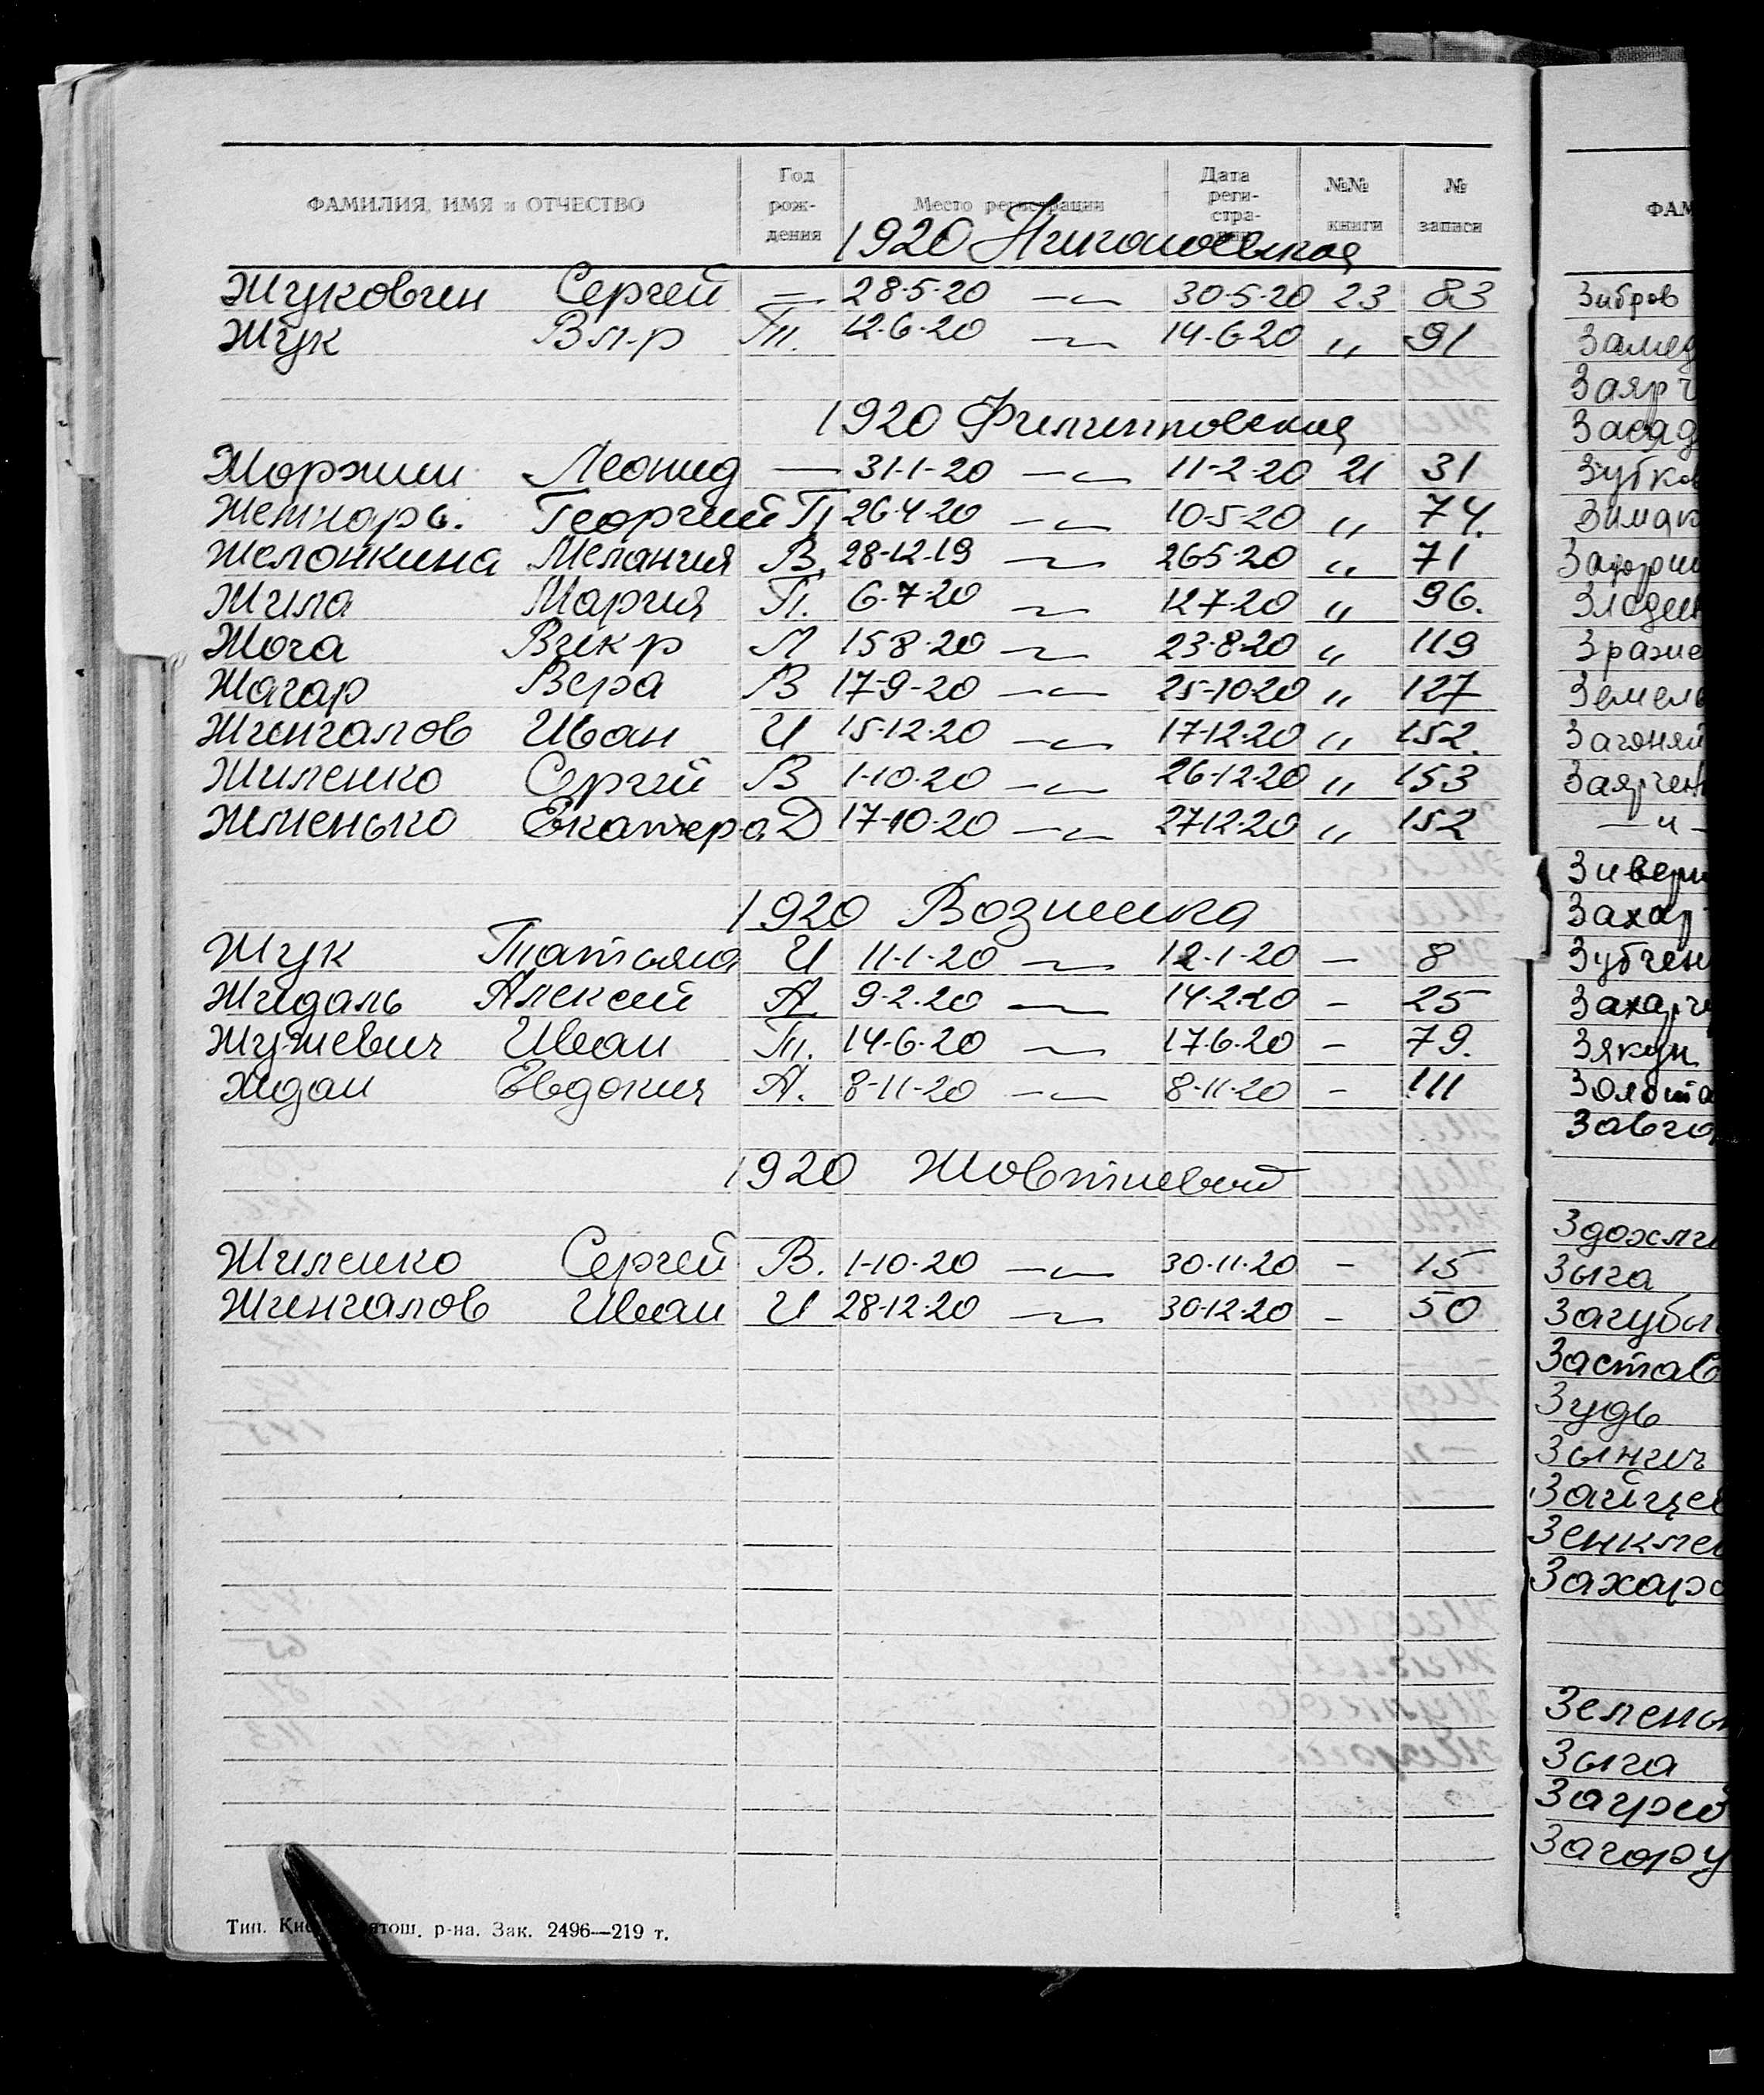 ФАМИЛИЯ, ИМЯ и ОТЧЕСТВО Год рождения Место регистрации Дата регистрации №№ книги № записи
1920 Николаевская
Жуковин Сергей — 28·5·20 —〃— 30·5·20 23 83
Жук Вл-р П. 12·6·20 —〃— 14·6·20 〃 91
1920 Филипповская
Моржин Леонид — 31·1·20 —〃— 11-2·20 21 31
Георгий П 26·4·20 —〃— 10·5·20 〃 74.
Желонкина Мелания В. 28-12·19 —〃— 26·5·20 〃 71
Жила Мария П. 6·7·20 —〃— 12·7·20 〃 96.
Жога Викр Л 15·8·20 —〃— 23·8·20 〃 119
Жагар Вера В 17-9-20 —〃— 25-10·20 〃 127
Жингалов Иван И 15·12·20 —〃— 17·12·20 〃 152.
Жиленко Сергей В 1·10·20 —〃— 26·12·20 〃 153
Жменько Екатера Д 17·10·20 —〃— 27·12·20 〃 152
1920 Вознешка
Жук Татьяна И 11·1·20 —〃— 12·1·20 — 8
Жидаль Алексей А 9·2·20 —〃— 14·2·20 — 25
Иван П. 14·6·20 —〃— 17·6·20 — 79.
Ждан Евдокия А. 8-11-20 —〃— 8·11·20 — 111
1920 Жовтневый
Жиленко Сергей В. 1·10·20 —〃— 30·11·20 — 15
Жингалов Иван И 28·12·20 —〃— 30·12·20 — 50
Тип. Ки атош. р-на. Зак. 2496—219 т.
ФАМ
Зибров
Замед
Заярч
Засяд
Зубков
Зимак
Зразие
Земель
Загоняй
Заярчен
—〃—
Зивери
Захар
Зубчен
Захарч
Зякун
Золота
Завго
Здохли
Зыга
Загубы
Застав
Зудь
Зынич
Зайцев
Зенкле
Захар
Зелены
Зыга
Загре
Загору